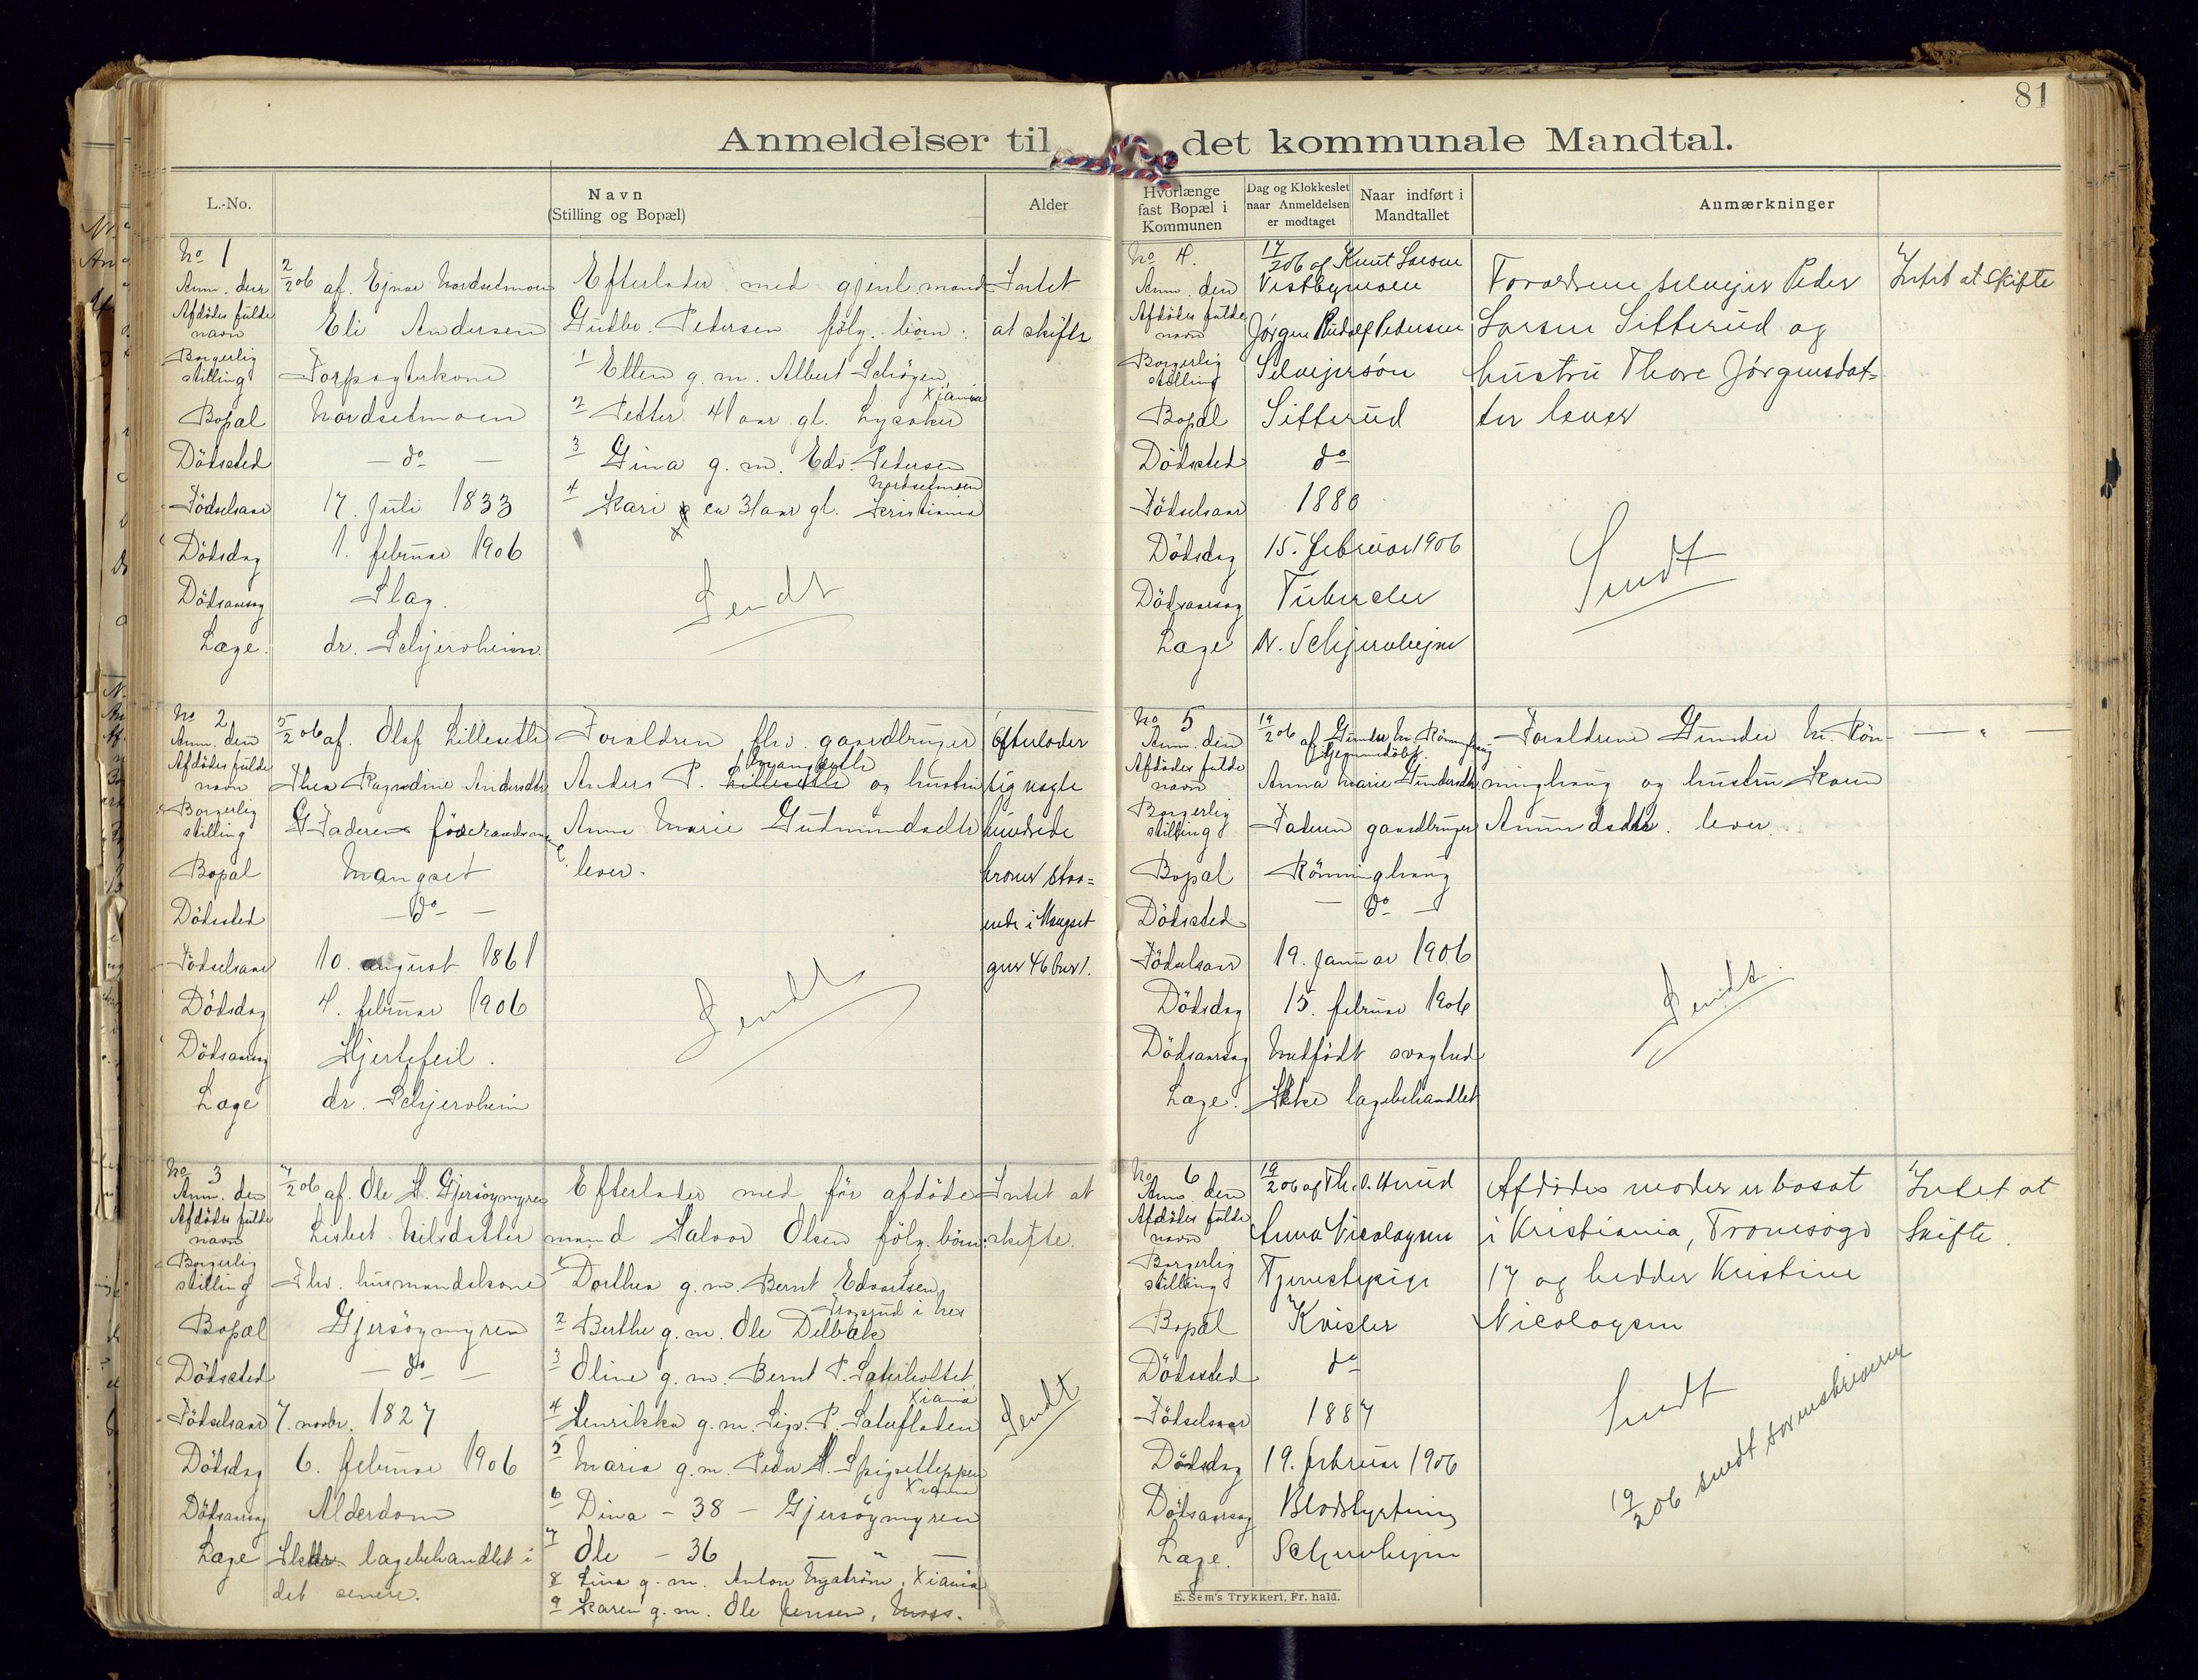 81
Anmeldelser til det kommunale Mandtal.
L.-No.
Navn
(Stilling og Bopæl)
Alder
Hvorlænge
fast Bopæl i
Kommunen
Dag og Klokkeslet
naar Anmeldelsen
er modtaget
Naar indført i
Mandtallet
Anmærkninger
No 1
Anm. den 2/2 06 af. Ejnar Nordsetmoen
Afdödes fulde
navn Eli Andersen
Borgerlig
stilling Forpagterkone
Bopæl Nordsetmoen
Dödssted — do —
Födselsaar 17. Juli 1833
Dödsdag 1. februar 1906
Dödsaarsag Slag.
Læge. dr. Schjervheim.
Efterlader med gjenl. mand
Gudbr. Petersen fölg. börn:
1 Ellen g. m. Albert Schøyen
Xiania
2 Petter 41 aar gl. Lysaker
3 Gina g. m. Edv. Petersen
Nordsetmoen
4 Kari ca 31 aar gl. Kristiania
Sendt
Intet
at skifte
No 2
Anm. den 5/2 06 af. Olaf Lillesetle
Afdödes fulde
navn Thea Ragndine Andersdtr
Borgerlig
stilling Faderen föderaadsm
Bopæl Mangset
Dödssted — do —
Födselsaar 10. august 1861
Dödsdag 4. februar 1906
Dödsaarsag Hjertefeil.
Læge dr. Schjervheim
Forældren fhv. gaardbruger
Anders P. Lillesetle og hustru
Anne Marie Gudmundsdtr
lever.
Sendt
Efterlader
sig nogle
hundrede
kroner staa=
ende i Mangset
gnr 46 bnr 1.
No 3
Anm. den 7/2 06 af. Ole H. Gjersöymyren
Afdödes fulde
navn Lisbet Nilsdatter
Borgerlig
stilling Fhv. husmandskone
Bopæl Gjersöymyren
Dödssted — do —
Födselsaar 7. novbr. 1827
Dödsdag 6. februar 1906
Dödsaarsag Alderdom
Læge lægebehandlet i
det senere.
Efterlader med för afdöde
mand Halvor Olsen fölg. börn:
1 Dorthea g. m. Bernt Edvartsen,
i Nes
2 Berthe g. m. Ole Delbæk
3 Oline g. m. Bernt P. Säterholtet
Xiania
4 Henrikka g. m. Sigv. P. Säterfladen
5 Maria g. m. Peder H. Spigsetteppen
Xiania
6 Dina - 38 - Gjersöymyren
7 Ole - 36 — " —
8 Lina g. m. Anton Nyström, Xiania
9 Karen g. m. Ole Jensen, Moss.
Intet at
skifte.
Sendt
No 4.
Anm. den 17/2 06 af Knut Larsen
Vestbymoen
Afdödes fulde
navn Jörgen Rudolf Pedersen
Borgerlig
stilling Selveiersön
Bopæl Sitterud
Dödssted do
Födselsaar 1880
Dödsdag 15. februar 1906
Dödsaarsag Tuberkler
Læge N. Schjervhejm
Forældrene selveier Peder
Larsen Sitterud og
hustru Thore Jørgensdat=
ter lever
Sendt
Intet at skifte
No 5
Anm. den 19/2 06 af Gunder M. Rönninghaug
Afdödes fulde
navn Anna Marie Gundersdtr
Borgerlig
stilling Faderen gaardbruger
Bopæl Rönninghaug
Dödssted — do —
Födselsaar 19. januar 1906
Dödsdag 15. februar 1906
Dödsaarsag Medfödt svaghed
Læge. Ikke lægebehandlet
Forældrene Gunder M. Rön-
ninghaug og hustru Karen
Amundsdtr. lever.
Sendt
— " —
No 6
Anm. den 19/2 06 af Th. O. Huud
Afdödes fulde
navn Anna Nicolaysen
Borgerlig
stilling Tjenestepige
Bopæl Kvisler
Dödssted do
Födselsaar 1887
Dödsdag 19. februar 1906
Dödsaarsag Blodstyrtning
Læge. Schjervhejm
Afdödes moder er bosat
i Kristiania, Tromsøgd
17 og hedder Kristine
Nicolaysen
Sendt
19/2 06 sendt sorenskriveren
Intet at
skifte.
E. Sem's Trykkeri, Fr. hald.